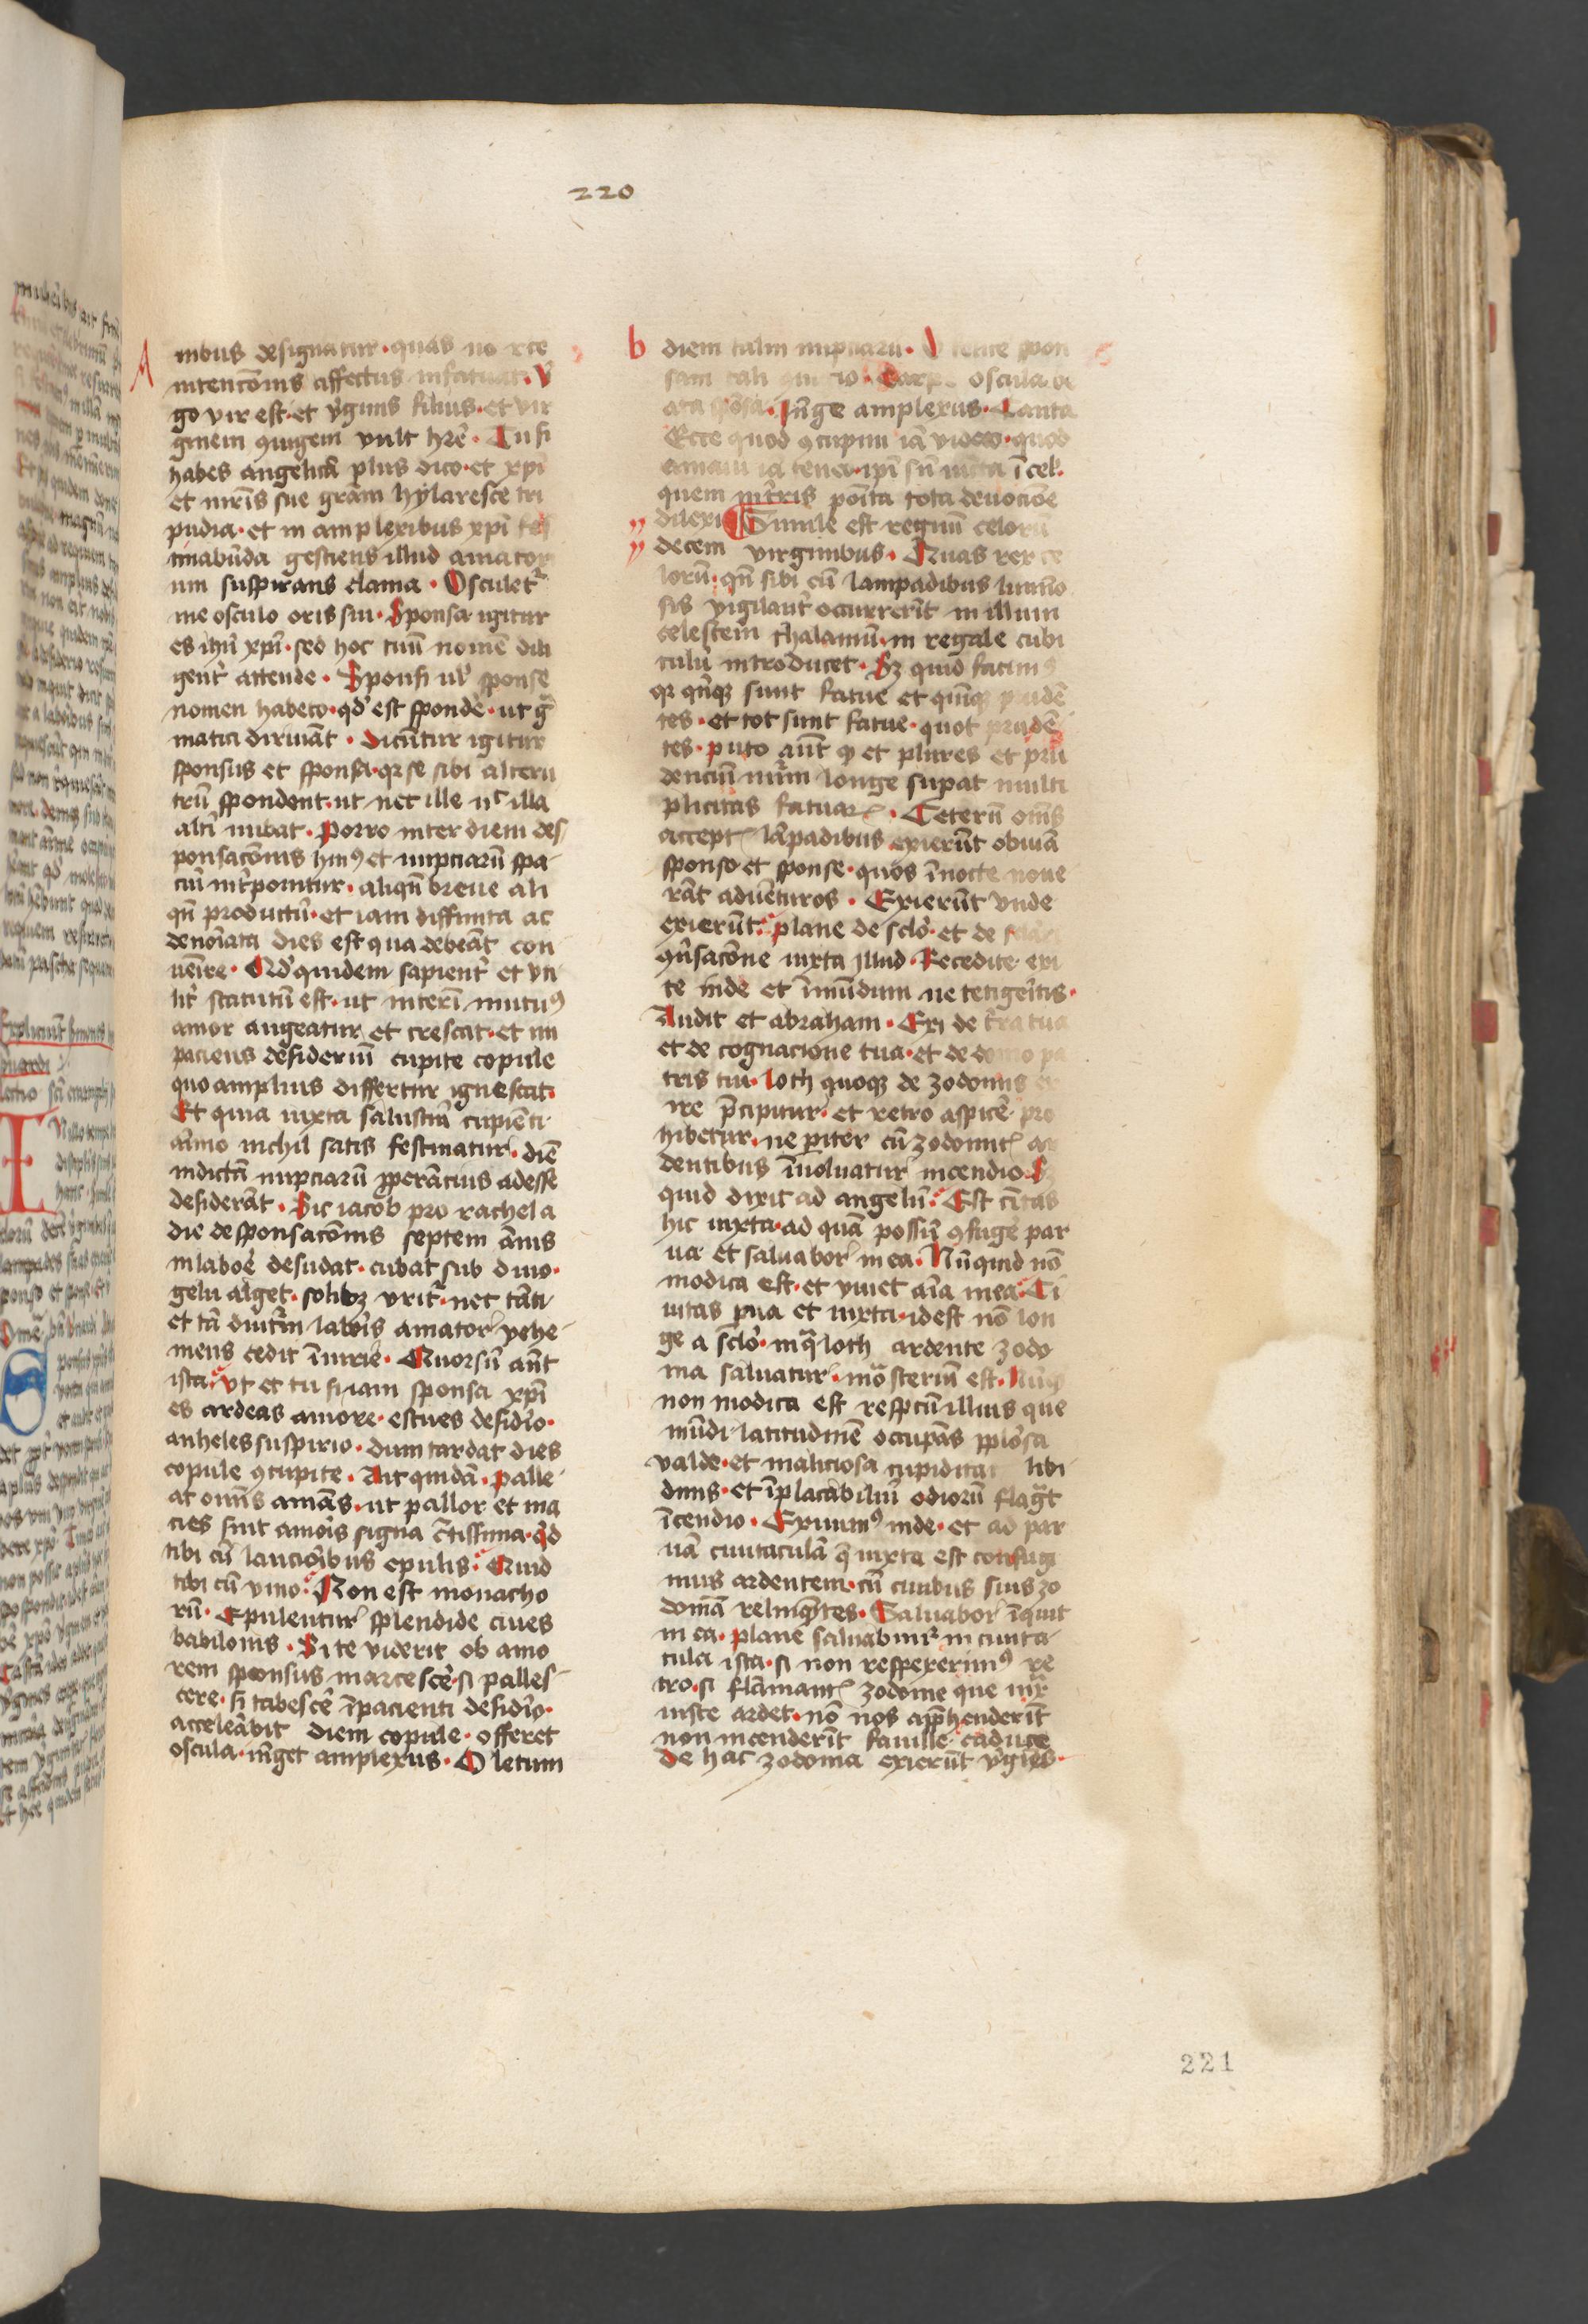 220
A
nibus designatur · quas no rce
intencōnis affectus infatuat · V̄
go vir est · et v̄ginis filius · et vir
ginem ꝯiugem vult hr̄e · Tu si
habes angelicā plus dico · et xp̄i
et mr̄is sue grām hylaresce tri
pudia · et in amplexibus xp̄i fes
tinabūda gestiens illud amator
um suspirans clama · Osculet᷑
me osculo oris sui · Sponsa igitur
es ih̄u xp̄i · sed hoc tuū nomē dili
gent᷑ attende · Sponsi ul᷑ sponse
nomen habeto · qd᷑ est spondē · ut g̃
matici diriuāt · Dicūtur igitur
sponsus et sponsa · qꝛ se sibi alteru
trū spondent · ut nec ille nͨ illa
alt᷑i nubat · Porro inter diem des
ponsacōnis huiꝰ et nupciarū spa
ciū int᷑ponitur · aliqn̄ breue ali
qn̄ productū · et iam diffinita ac
denoīata dies est qua debeāt con
uēire · Qd᷑ quidem sapient᷑ et vti
lit᷑ statutū est · ut interī mutuꝰ
amor augeatur et crescat · et im
paciens desideriū cupite copule
quo amplius differtur ignescat ·
Et quia iuxta salustiū cupiēti
aīmo nichil satis festinatur · diē
indictā nupciarū ꝓperācius adesse
desiderāt · Sic iacob pro rachel a
die desponsacōnis septem ānis
in laboē desudat · cubat sub diuo ·
gelu alget · solibꝫ vrit᷑ · nec tāti
et tā diut᷑ni labōis amator vehe
mens cedit īiurie · Quorsū aūt
ista · Vt et tu si iam sponsa xp̄i
es ardeas amore · estues desid᷑io ·
anheles suspirio · dum tardat dies
copule ꝯcupite · Ait quidā · palle
at omīs amās · ut pallor et ma
cies sint amōis signa c᷑tissima · qͥd
tibi cū laucioībus epulis · Quid
tibi cū vino · Non est monacho
rū · Epulentur splendide ciues
babilonis · Si te viderit ob amo
rem sponsus marcescē · si palles
cere · si tabescē īpacienti desid᷑io ·
acceleābit diem copule · offeret
oscula · iūget amplexus · O letum
b
diem talm nupciarū · spon
sam tali oscula be
ata spōsa · Iūge amplexus · Canta
Ecce quod ꝯcupiui iā video · quod
amaui iā teneo · ip̄i sū iūcta ī cel ·
quem in t᷑ris poīta tota deuocōe
dilexi Simile est regnū celorū
decem virginibus · Quas rex ce
lorū · qn̄ sibi cū lampadibus luīno
sis vigilant᷑ occurrerīt in illum
celestem thalamū · in regale cubi
culū introducet · Sꝫ quid facimꝰ
qꝛ qn̄qꝫ sunt fatue et quīqꝫ prudē
tes · et tot sunt fatue · quot prudē
tes · puto aūt ꝙ et plures et pru
denciū nūm longe supat multi
plicitas fatuaꝝ · Ceterū omīs
accept lāpadibus exierūt obuiā
sponso et sponse · quos ī nocte noue
rāt aduēturos · Exierūt vnde
exierūt · plane de sclo᷑ · et de
ꝯu᷑sacōne iuxta illud · Recedite exi
te inde et īmūdum ne tetigeītis ·
Audit et abraham · Exi de t᷑ra tua
et de cognacione tua · et de domo pa
tris tui · Loth quoqꝫ de zodomis ex
ire p̄cipitur · et retro aspicē pro
hibetur · ne pariter cū zodomit ar
dentibus īuoluatur incendio · Sꝫ
quid dixit ad angelū · Est ciuitas
hic iuxta · ad quā possū ꝯfugē par
ua et saluabor in ea · Nūquid nō
modica est · et viuet aīa mea · Ci
uitas pua et iuxta · idest nō lon
ge a sclo᷑ · in qͣ loth ardente zodo
ma saluatur · mōsterium est · Nūqͥd
non modica est respcū illius que
mūdi latitudinē occupās ꝓplōsa
valde · et maliciosa cupiditat libi
dinis · et īplacabiliū odiorū flagͣt
īcendio · Exiuimꝰ inde · et ad par
uā ciuitaculā q̄ iuxta est confugi
mus ardentem · cū ciuibus suis zo
domā relinqͣntes · Saluabor īquit
in ea · plane saluabimꝛ in ciuita
cula ista · si non respexerimꝰ re
tro · si flāmant zodome que
iuste ardet · nō nos app̄henderīt
non incenderīt fauille caduce
De hac zodoma exierūt v᷑gīes ·
221